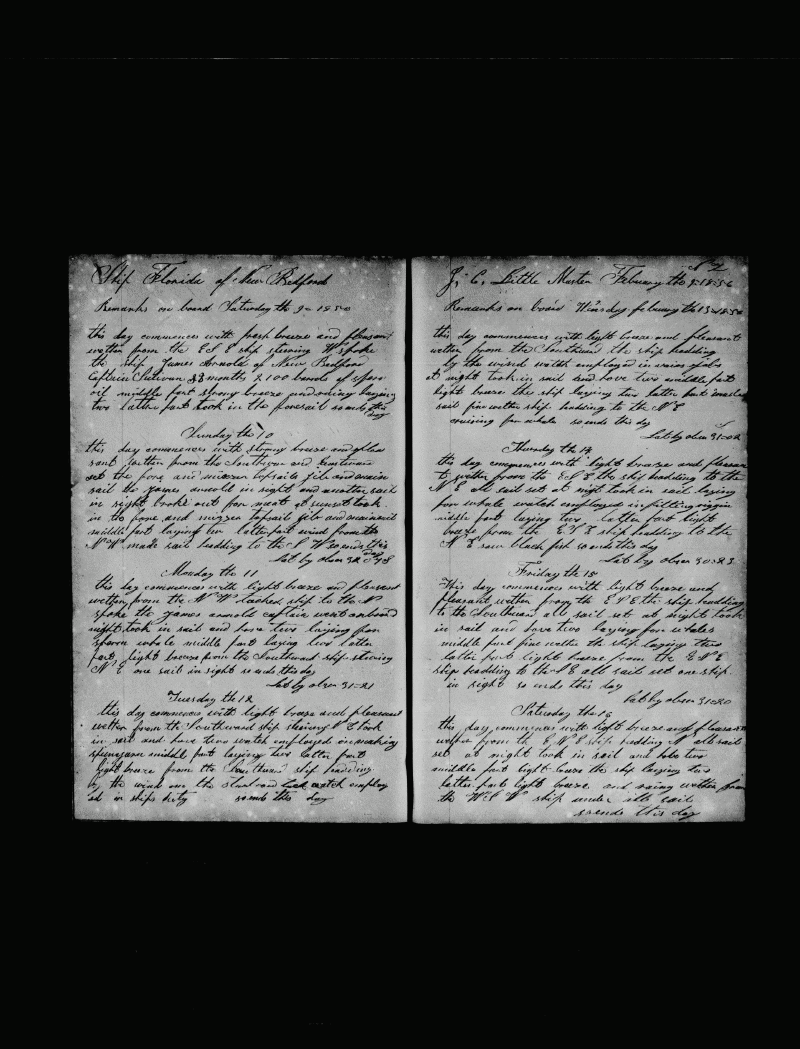 Ship Florida of New Bedford
Remarks on board Saturday the 9 1850
this day commences with fresh breeze and pleasant
wether from the E S E ship steering W spoke
the ship James Arnold of New Bedford
Captain Sulivan 28 months 2100 barels of sperm
oil middle part strong breeze and raney laying
two latter part took in the foresail so ends this
day
Sunday the 10
this day commences with strong breeze and plea
sant wether from the Southern and
set the fore and mizzen topsails jib and main
sail the James arnold in sight and another sail
in sight broke out for meat at sunset took
in the fore and mizzen topsail jib and mainsail
middle part laying two latter part wind from the
N W made sail heading to the S W so ends this
day
Lat by obser 32 08
Monday the 11
this day commences with light breeze and pleasent
wether from the N W tacked ship to the N
spoke the James arnold captain went on board
night took in sail and hove two laying for
sperm whale middle part laying two latter
part light breeze from the Southward ship steering
N E one sail in sight so ends this day
Lat by obser 31=21
Tuesday the 12
this day commences with light breeze and pleasent
wether from the Southward ship steering N E took
in sail and hove two watch employed in making
middle part laying two latter part
light breeze from the Southward ship heading
by the wind on the Starboard tack watch employ
ed in ships duty so ends this day
N 2
J. C. Little Master Febuary the 9 1850
Remarks on board Wensday febuary th 13=1850
this day commences with light breeze and pleasent
wether from the Southward the ship heading
by the wind watch employed in varis jobs
at night took in sail and hove two middle part
light breeze the ship laying two latter part made
sail fine wether ship heading to the N E
cruising for whale so ends this day
Lat by obser 31=02
Thursday the 14
this day commences with light breaze and pleasan
t wether from the E S E the ship heading to the
N E all sail set at night took in sail laying
for whale watch employed in fitting riggin
middle part laying two latter part light
breze from the E S E ship heading to the
N E saw black fish so ends this day
Lat by obser 30=23
Friday the 15
This day commences with light breeze and
pleasant wether from the E S E the ship heading
to the Southward all sail set at night took
in sail and hove two laying for whales
middle part fine wether the ship laying two
latter part light breeze from the E N E
ship heading to the S E all sail set one ship
in sight so ends this day
Lat by obser 31=20
Saturday the 16
this day commences with light breeze and pleasan
wether from the E N E ship heading N all sail
set at night took in sail and hove two
middle part light breeze the ship laying two
latter part light breeze and rainy wether from
the W S W ship under all sail
so ends this day